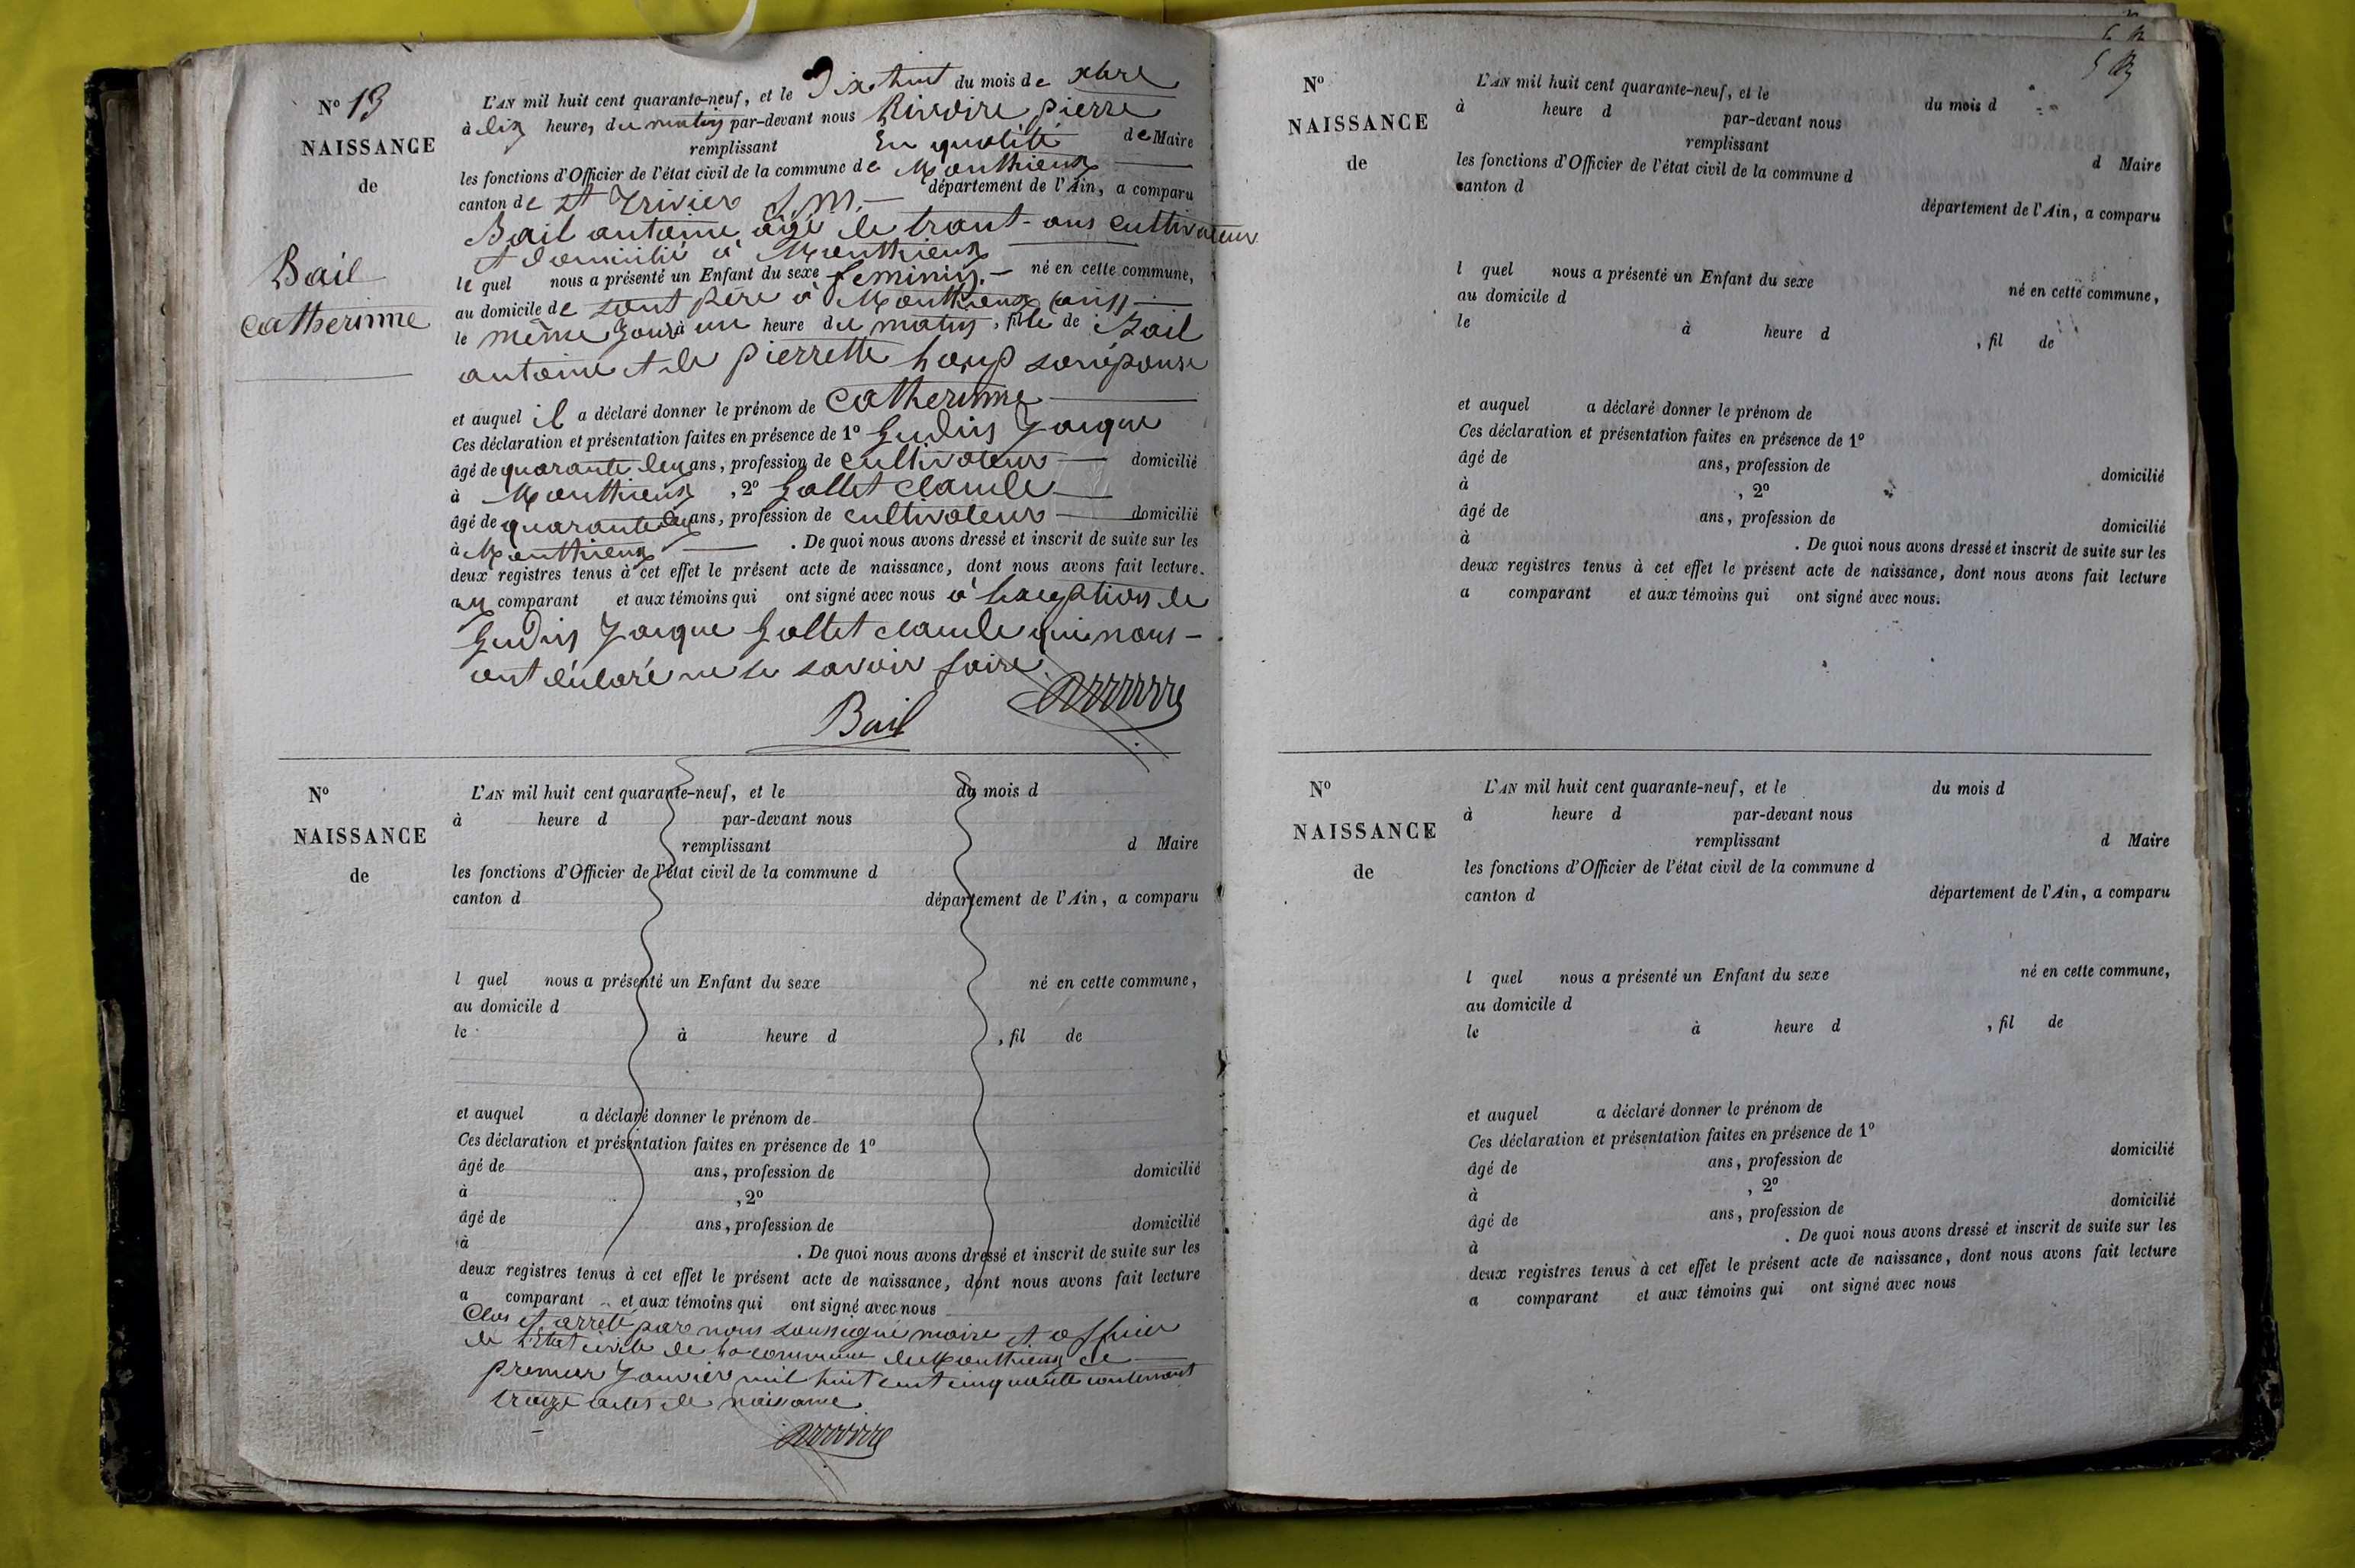 N° 13
NAISSANCE
de
Bail
Catherinne
L'AN mil huit cent quarante-neuf, et le Dix huit du mois de xbre
à dix heures du matin par-devant nous Rivoire pierre
remplissant En qualité de Maire
les fonctions d'Officier de l'état civil de la commune de Monthieux
canton de St Trivier S.M. département de l'Ain, a comparu
Bail antoine âgé de trant-ans cultivateur
et domicilié à Monthieux
le quel nous a présenté un Enfant du sexe feminin né en cette commune,
au domicile de sont père à Monthieux
le même Jour à une heure du matin, fille de Bail
antoine et de pierrette sonépouse
et auquel il a déclaré donner le prénom de Catherinne
Ces déclaration et présentation faites en présence de 1° Gudin Jacque
âgé de quarante deux ans, profession de cultivateur domicilié
à Monthieux, 2° Gollet claude
âgé de quarante deux ans, profession de cultivateur domicilié
à Monthieux. De quoi nous avons dressé et inscrit de suite sur les
deux registres tenus à cet effet le présent acte de naissance, dont nous avons fait lecture.
au comparant et aux témoins qui ont signé avec nous à laxeption de
Gudin Jacque Gollet claude qui nous
ont déclaré ne le savoir faire
Bail
N°
NAISSANCE
de
L'AN mil huit cent quarante-neuf, et le du mois d
à heure d par-devant nous
remplissant d Maire
les fonctions d'Officier de l'état civil de la commune d
canton d département de l'Ain, a comparu
l quel nous a présenté un Enfant du sexe né en cette commune,
au domicile d
le à heure d , fil de
et auquel a déclaré donner le prénom de
Ces déclaration et présentation faites en présence de 1°
âgé de ans, profession de domicilié
à , 2°
âgé de ans, profession de domicilié
à . De quoi nous avons dressé et inscrit de suite sur les
deux registres tenus à cet effet le présent acte de naissance, dont nous avons fait lecture
a comparant et aux témoins qui ont signé avec nous
Clos et arreté par nous soussigné maire et officier
de l'Etat civile de la commune de Monthieux ce
premier Janvier mil huit cent cinquante contenant
traize actes de naissance
N°
NAISSANCE
de
L'AN mil huit cent quarante-neuf, et le du mois d
à heure d par-devant nous
remplissant d Maire
les fonctions d'Officier de l'état civil de la commune d
canton d département de l'Ain, a comparu
l quel nous a présenté un Enfant du sexe né en cette commune,
au domicile d
le à heure d , fil de
et auquel a déclaré donner le prénom de
Ces déclaration et présentation faites en présence de 1°
âgé de ans, profession de domicilié
à , 2°
âgé de ans, profession de domicilié
à . De quoi nous avons dressé et inscrit de suite sur les
deux registres tenus à cet effet le présent acte de naissance, dont nous avons fait lecture
a comparant et aux témoins qui ont signé avec nous.
N°
NAISSANCE
de
L'AN mil huit cent quarante-neuf, et le du mois d
à heure d par-devant nous
remplissant d Maire
les fonctions d'Officier de l'état civil de la commune d
canton d département de l'Ain, a comparu
l quel nous a présenté un Enfant du sexe né en cette commune,
au domicile d
le à heure d , fil de
et auquel a déclaré donner le prénom de
Ces déclaration et présentation faites en présence de 1°
âgé de ans, profession de domicilié
à , 2°
âgé de ans, profession de domicilié
à . De quoi nous avons dressé et inscrit de suite sur les
deux registres tenus à cet effet le présent acte de naissance, dont nous avons fait lecture
a comparant et aux témoins qui ont signé avec nous